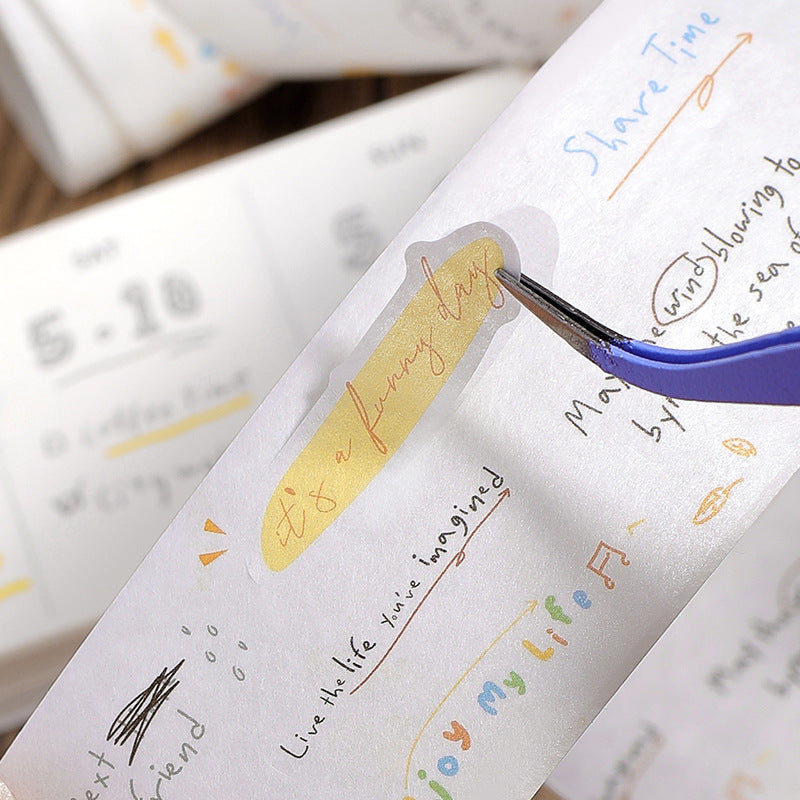 Share Time
wind blowing to
the sea of
it's a funny day
Live the life you've imagined
joy My Life
5.10
ext
riend